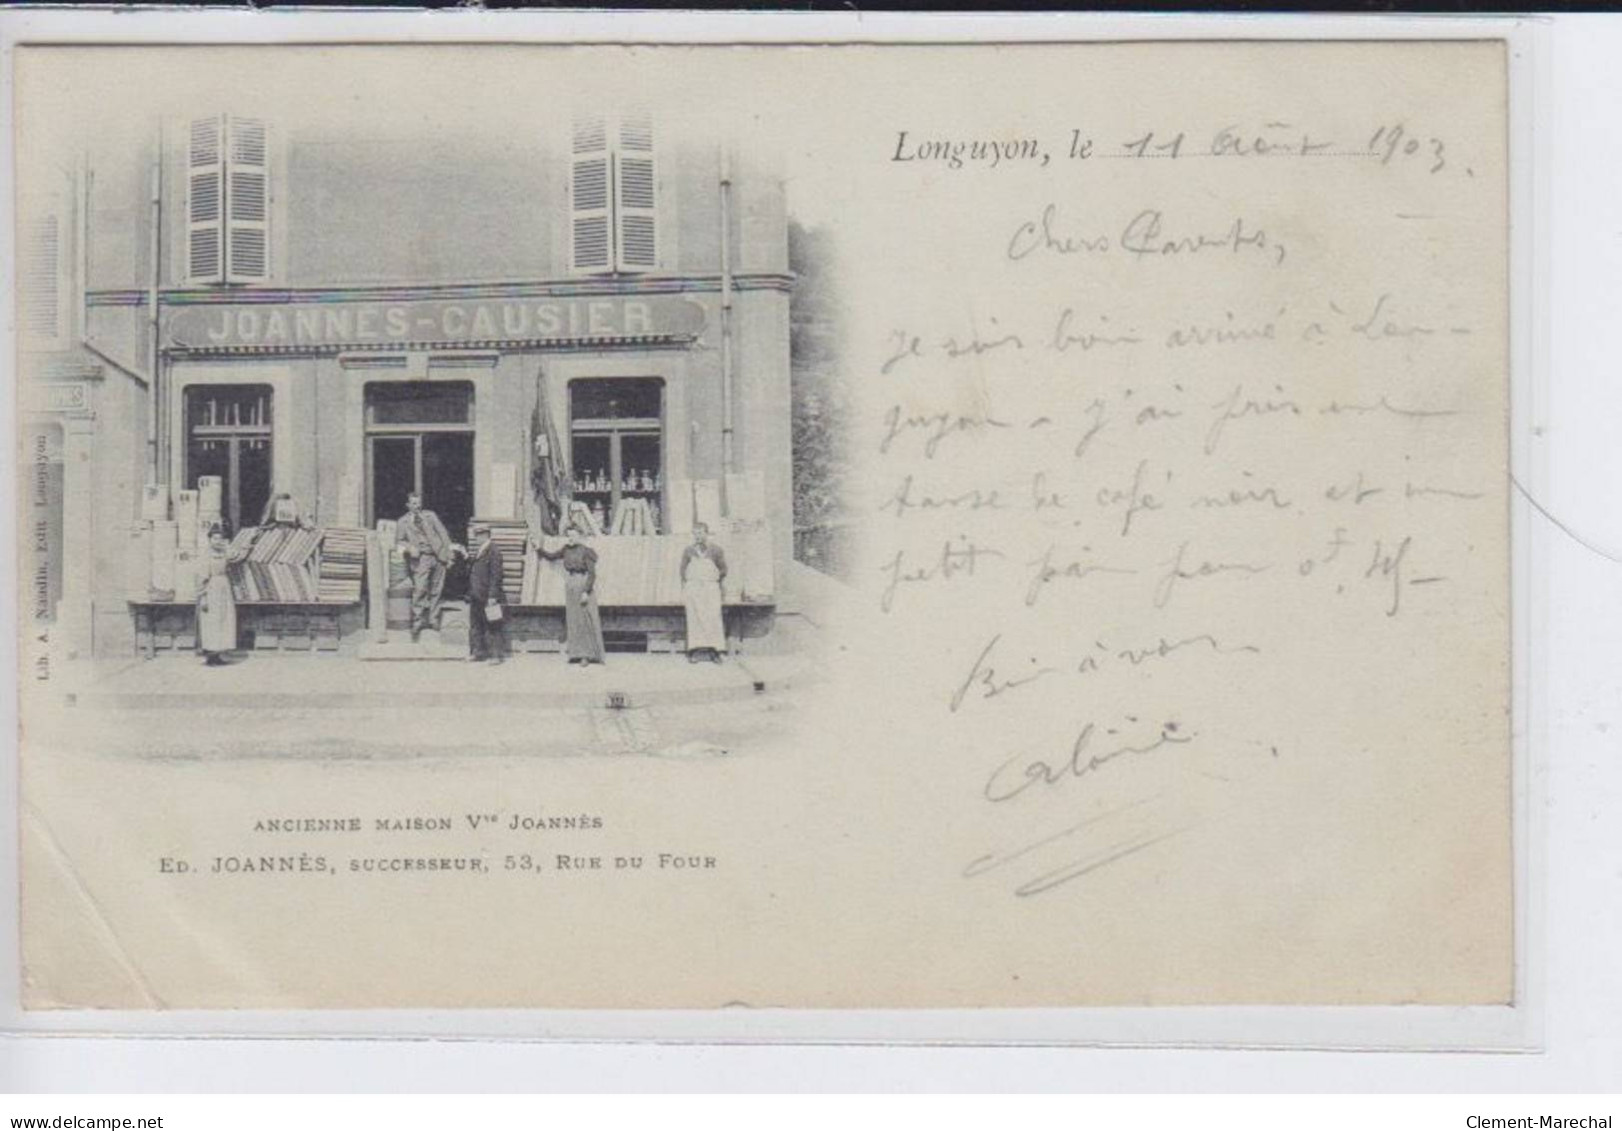 JOANNES-CAUSIER
Lib. A. Naudin, Edit. Longuyon
ANCIENNE MAISON Vve JOANNÈS
ED. JOANNÈS, SUCCESSEUR, 53, RUE DU FOUR
Longuyon, le 11 Août 1903.
Chers Parents,
Je suis bien arrivé à Lon-
guyon - J'ai pris une
tasse de café noir et un
petit pain pour 0f,45 -
Bien à vous
delcampe.net
Clement-Marechal